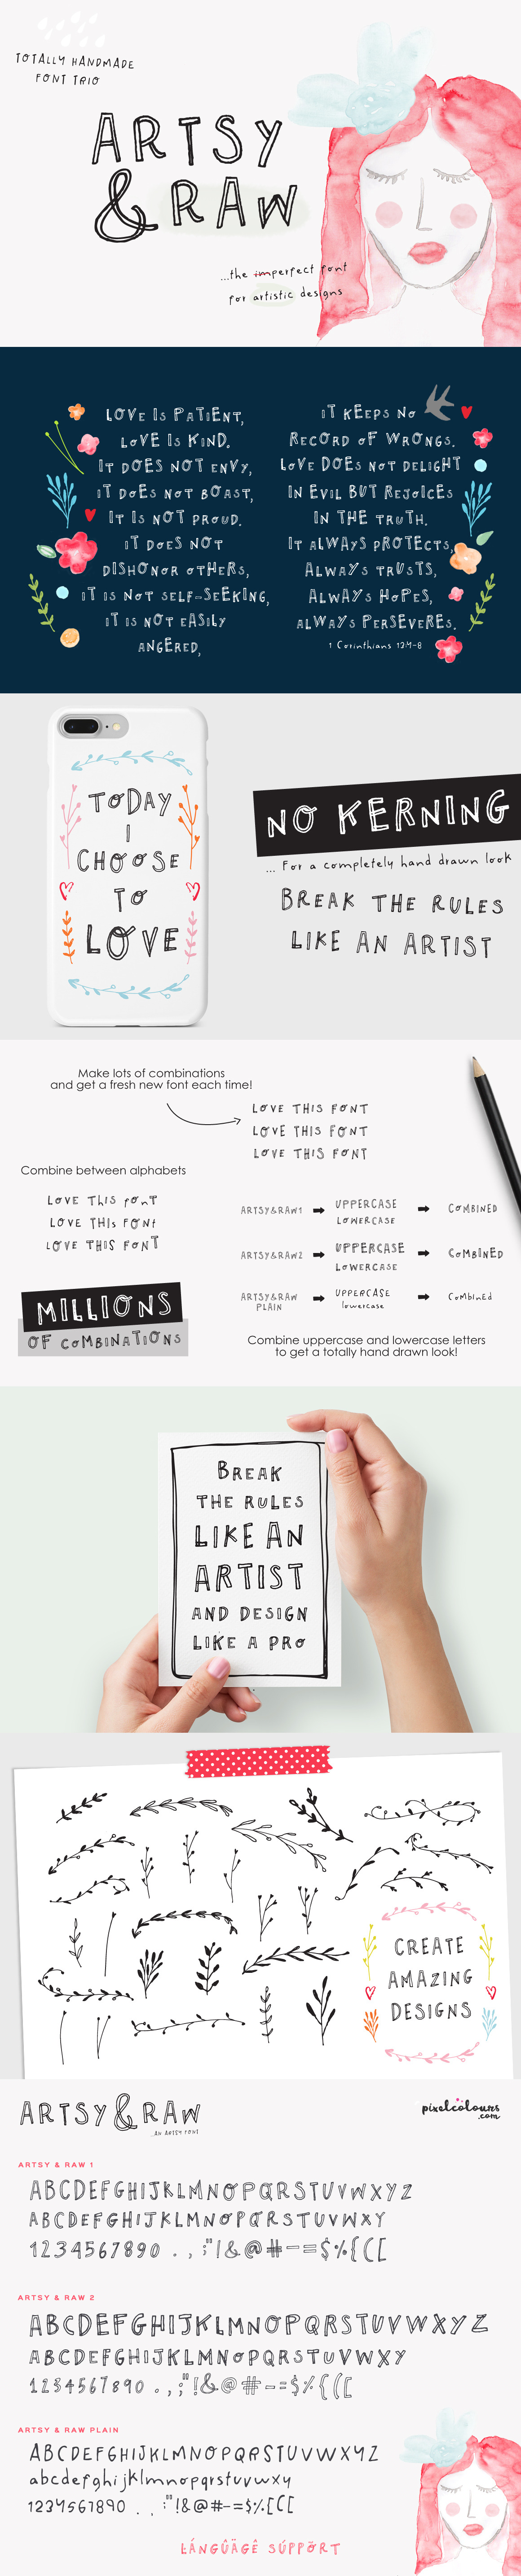 TOTALLY HANDMADE
FONT TRIO
ARTSY
& RAW
...the imperfect font
for artistic designs
LOVE IS PATIENT,
LOVE IS KIND.
IT DOES NOT ENVY,
IT DOES NOT BOAST,
IT IS NOT PROUD.
IT DOES NOT
DISHONOR OTHERS,
IT IS NOT SELF-SEEKING,
IT IS NOT EASILY
ANGERED,
IT KEEPS NO
RECORD OF WRONGS.
LOVE DOES NOT DELIGHT
IN EVIL BUT REJOICES
IN THE TRUTH.
IT ALWAYS PROTECTS,
ALWAYS TRUSTS,
ALWAYS HOPES,
ALWAYS PERSEVERES.
1 Corinthians 13:4-8
TODAY
I
CHOOSE
TO
LOVE
NO KERNING
... For a completely hand drawn look
BREAK THE RULES
LIKE AN ARTIST
Make lots of combinations
and get a fresh new font each time!
LOVE THIS FONT
LOVE THIS FONT
LOVE THIS FONT
Combine between alphabets
LOVE This fonT
LOVE THIs FONt
LOVE THIS FONT
ARTSY&RAW1
UPPERCASE
LOWERCASE
COMBINED
ARTSY&RAW2
UPPERCASE
LOWERCASE
COMBINED
ARTSY&RAW
PLAIN
UPPERCASE
lowercase
CoMbInEd
MILLIONS
OF COMBINATIONS
Combine uppercase and lowercase letters
to get a totally hand drawn look!
BREAK
THE RULES
LIKE AN
ARTIST
AND DESIGN
LIKE A PRO
CREATE
AMAZING
DESIGNS
ARTSY & RAW
...AN ARTSY FONT
pixelcolours
.com
ARTSY & RAW 1
ABCDEFGHIJKLMNOPQRSTUVWXYZ
ABCDEFGHIJKLMNOPQRSTUVWXY
1234567890 . , ;"!&@#-=$%{([
ARTSY & RAW 2
ABCDEFGHIJKLMNOPQRSTUVWXYZ
ABCDEFGHIJKLMNOPQRSTUVWXY
1234567890 . , ;"!&@#-=$%{([
ARTSY & RAW PLAIN
ABCDEFGHIJKLMNOPQRSTUVWXYZ
abcdefghijklmnopqrstuvwxy
1234567890 . , :"!&@#-=$%[{[
LÁNGÛÄGÊ SÚPPÖRT